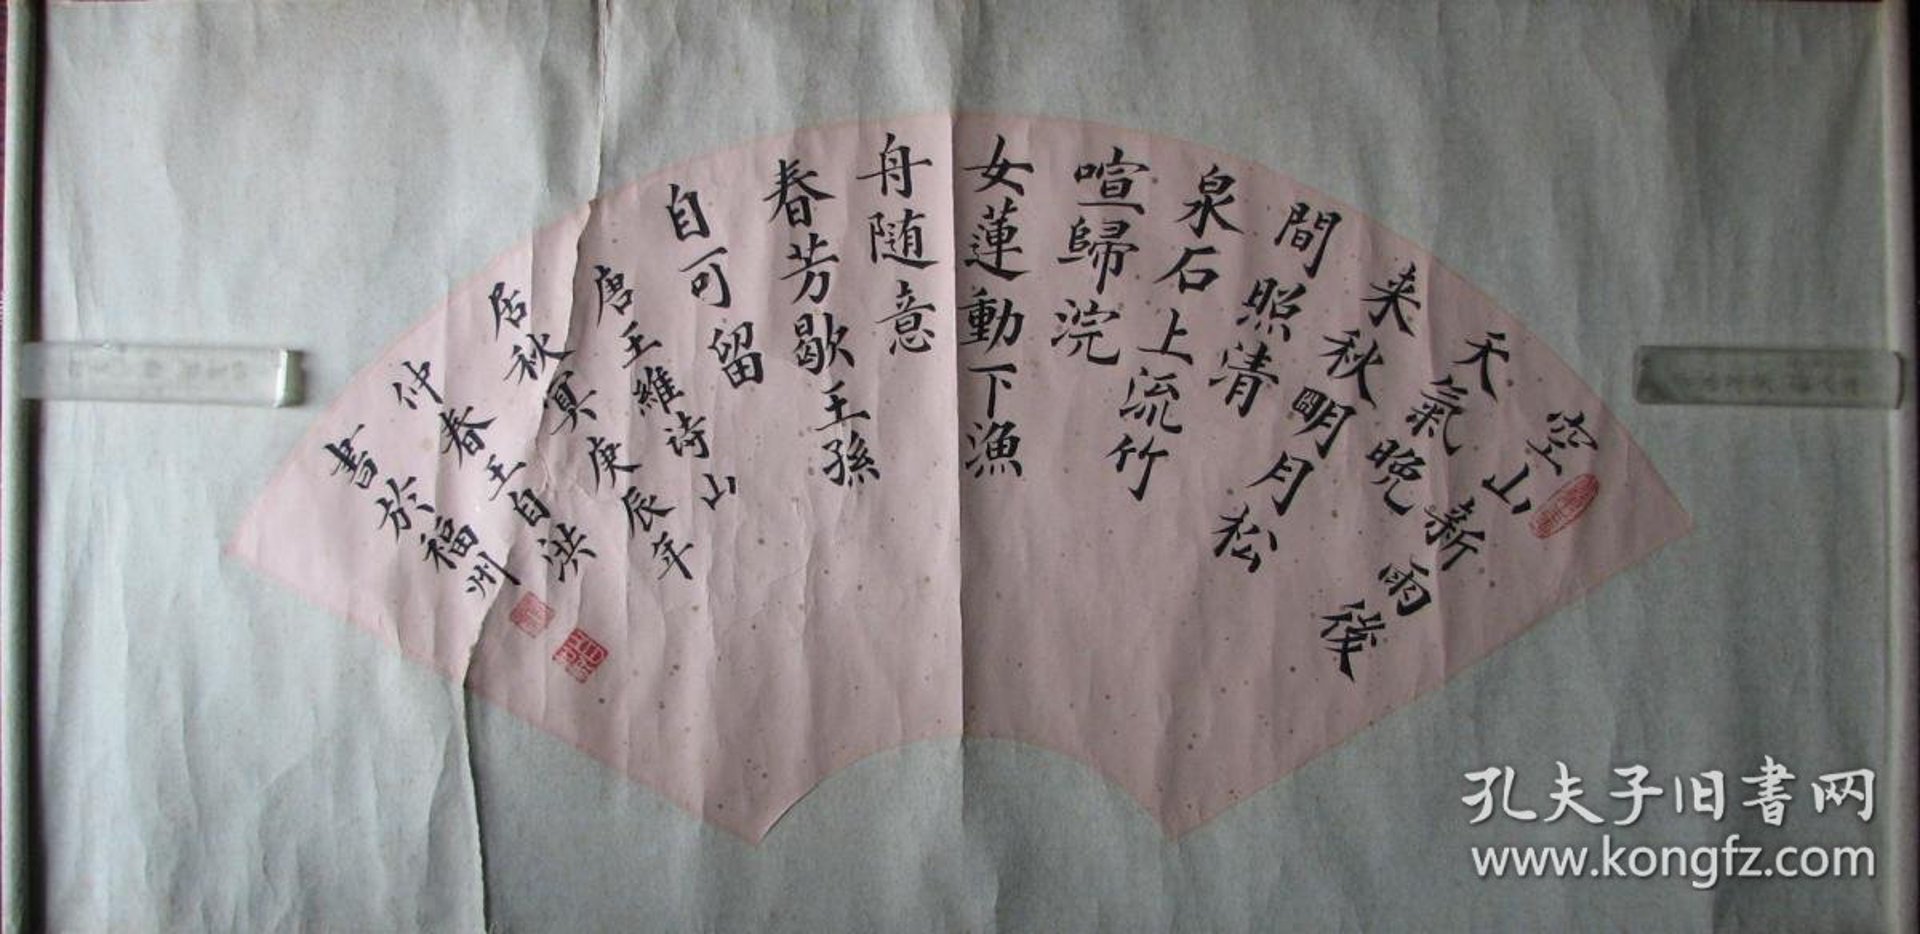 空山新雨後
天氣晚
来秋明月松
間照清
泉石上流竹
喧歸浣
女蓮動下漁
舟随意
春芳歇王孫
自可留
唐王維诗山
居秋冥庚辰年
仲春王自洪
書於福州
孔夫子旧书网
www.kongfz.com